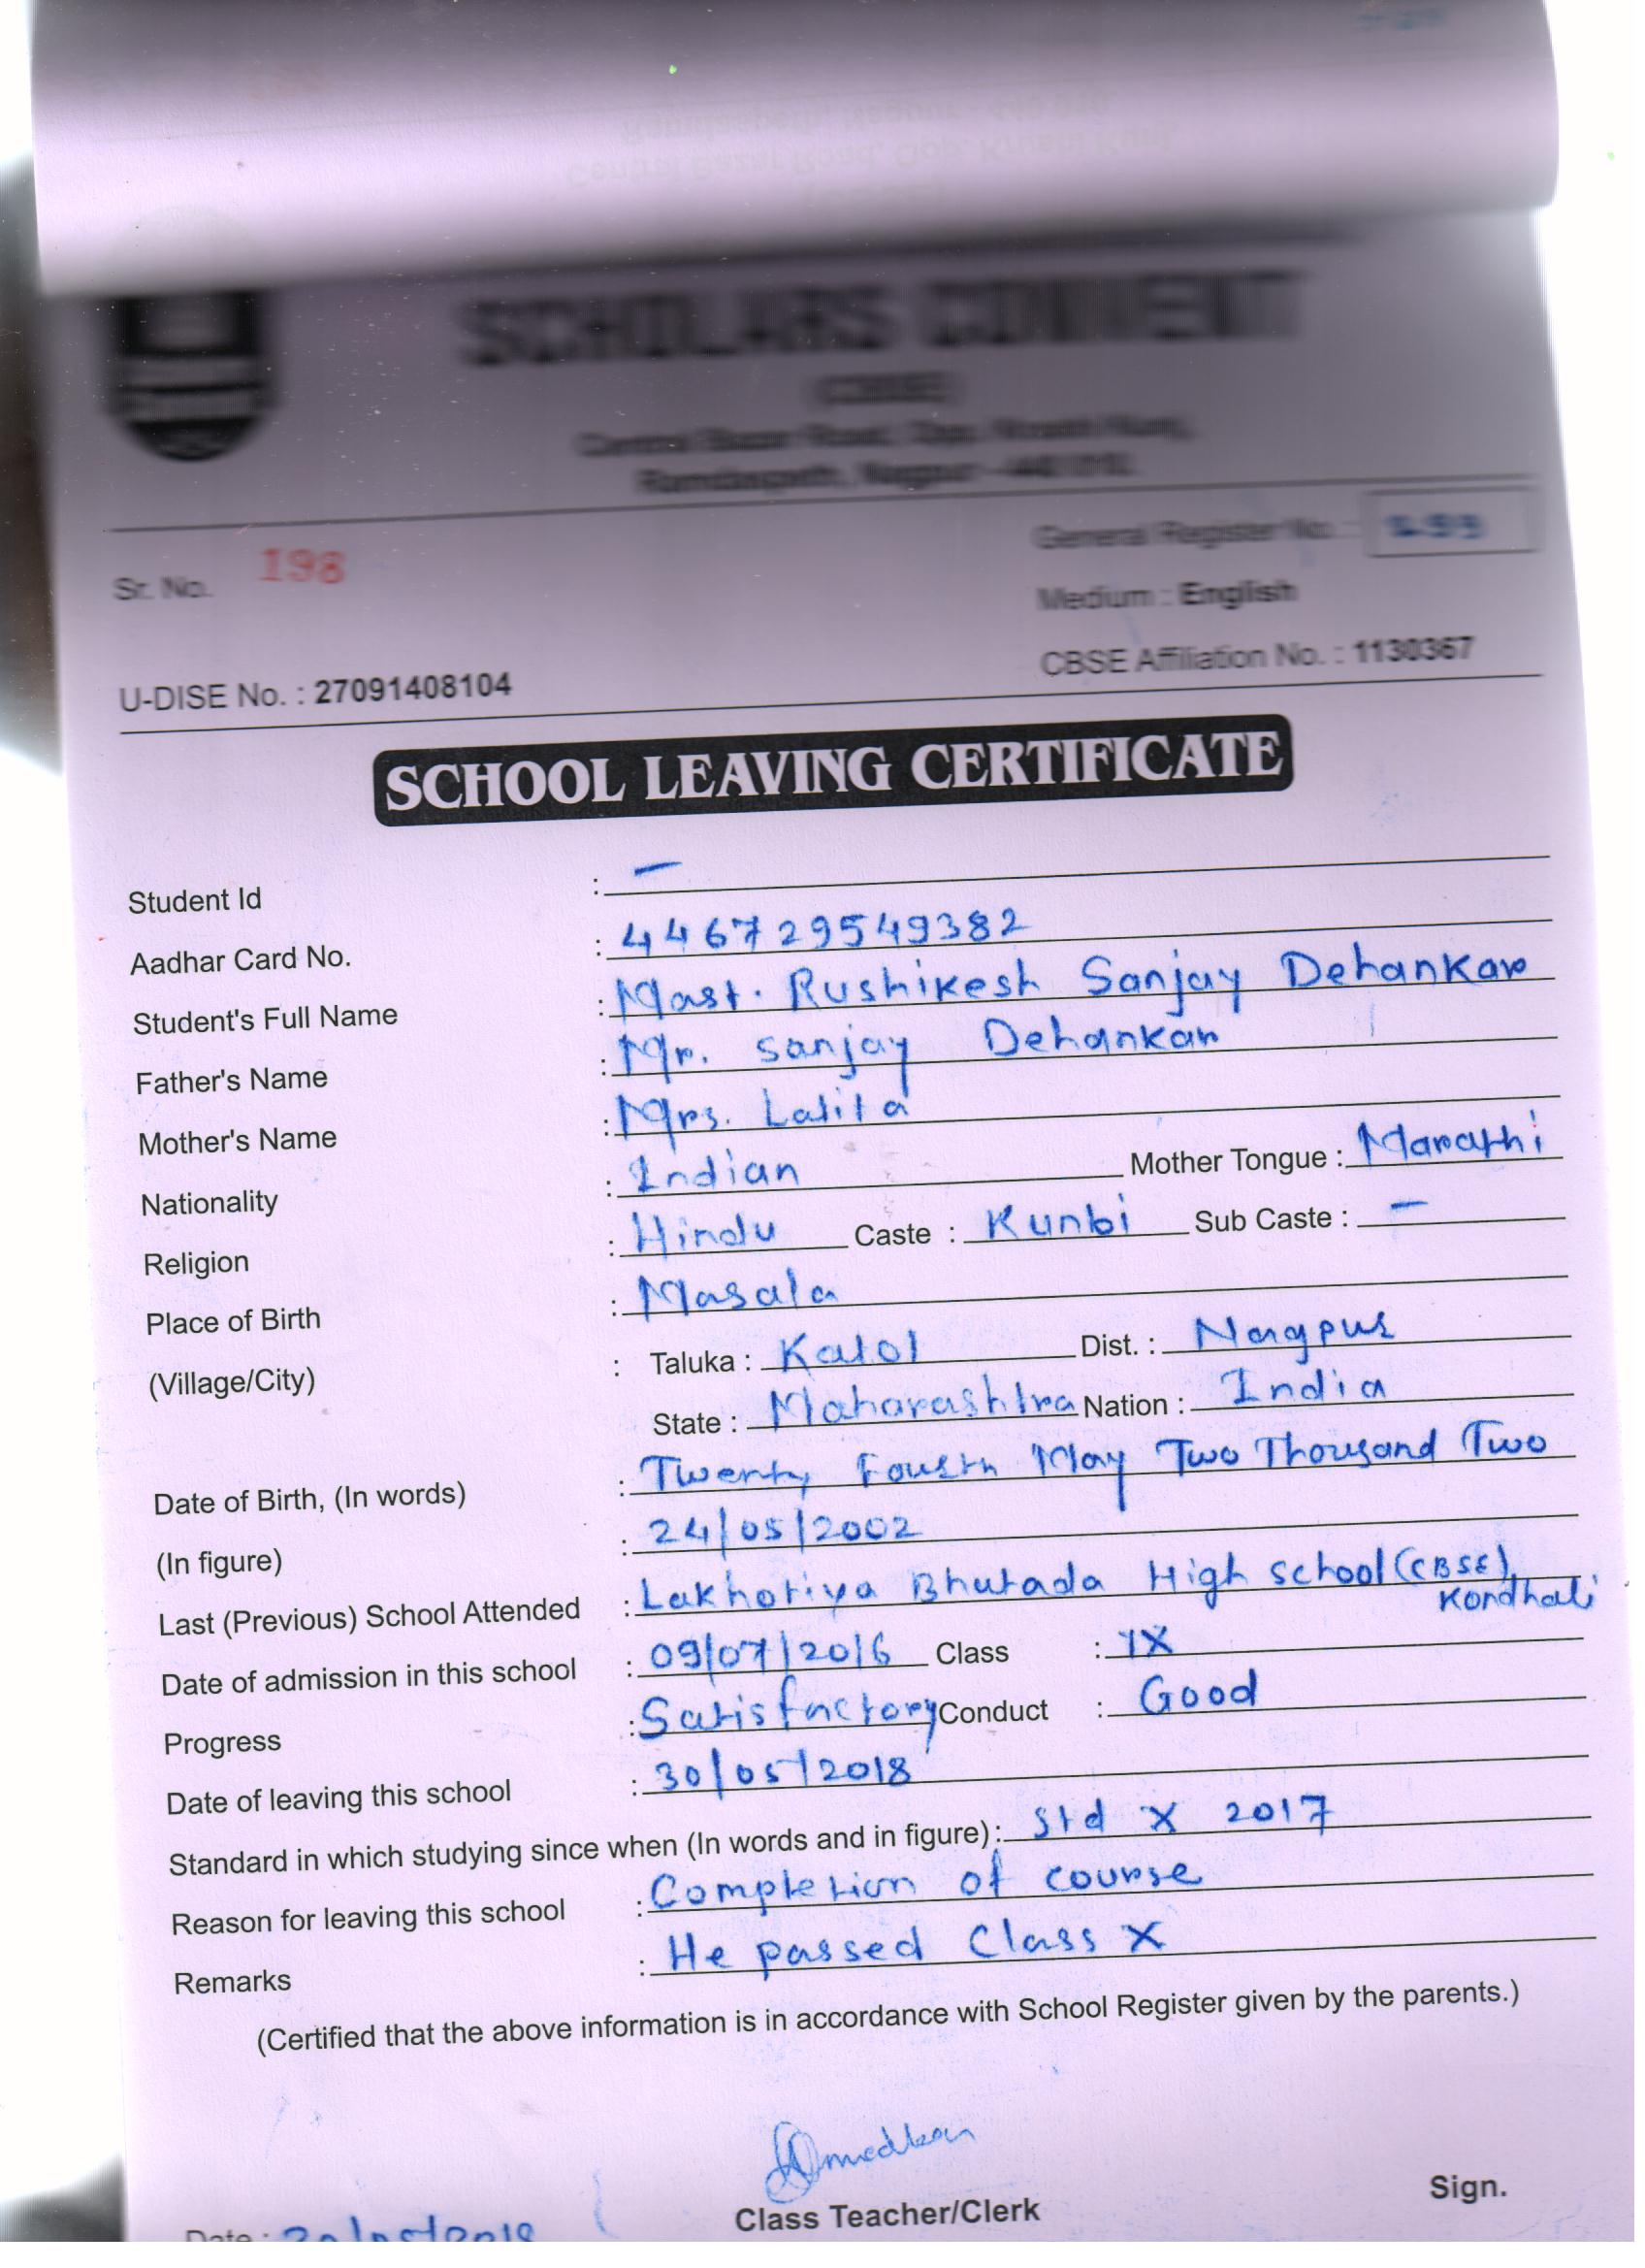 SCHOLARS CONVENT
(CBSE)
Central Bazar Road, Opp. Krushi Kunj,
Ramdaspeth, Nagpur - 440 010.
General Register No. :
Sr. No. 198
Medium : English
U-DISE No. : 27091408104 CBSE Affiliation No. : 1130367
SCHOOL LEAVING CERTIFICATE
Student Id : —
Aadhar Card No. : 446729549382
Student's Full Name : Mast. Rushikesh Sanjay Dehankar
Father's Name : Mr. Sanjay Dehankar
Mother's Name : Mrs. Lalita
Nationality : Indian Mother Tongue : Marathi
Religion : Hindu Caste : Kunbi Sub Caste : —
Place of Birth : Masala
(Village/City) : Taluka : Katol Dist. : Nagpur
State : Maharashtra Nation : India
Date of Birth, (In words) : Twenty Fourth May Two Thousand Two
(In figure) : 24/05/2002
Last (Previous) School Attended : Lakhotiya Bhutada High School (CBSE),
Kondhali
Date of admission in this school : 09/07/2016 Class : IX
Progress : Satisfactory Conduct : Good
Date of leaving this school : 30/05/2018
Standard in which studying since when (In words and in figure) : Std X 2017
Reason for leaving this school : Completion of course
Remarks : He passed Class X
(Certified that the above information is in accordance with School Register given by the parents.)
Class Teacher/Clerk Sign.
Date :